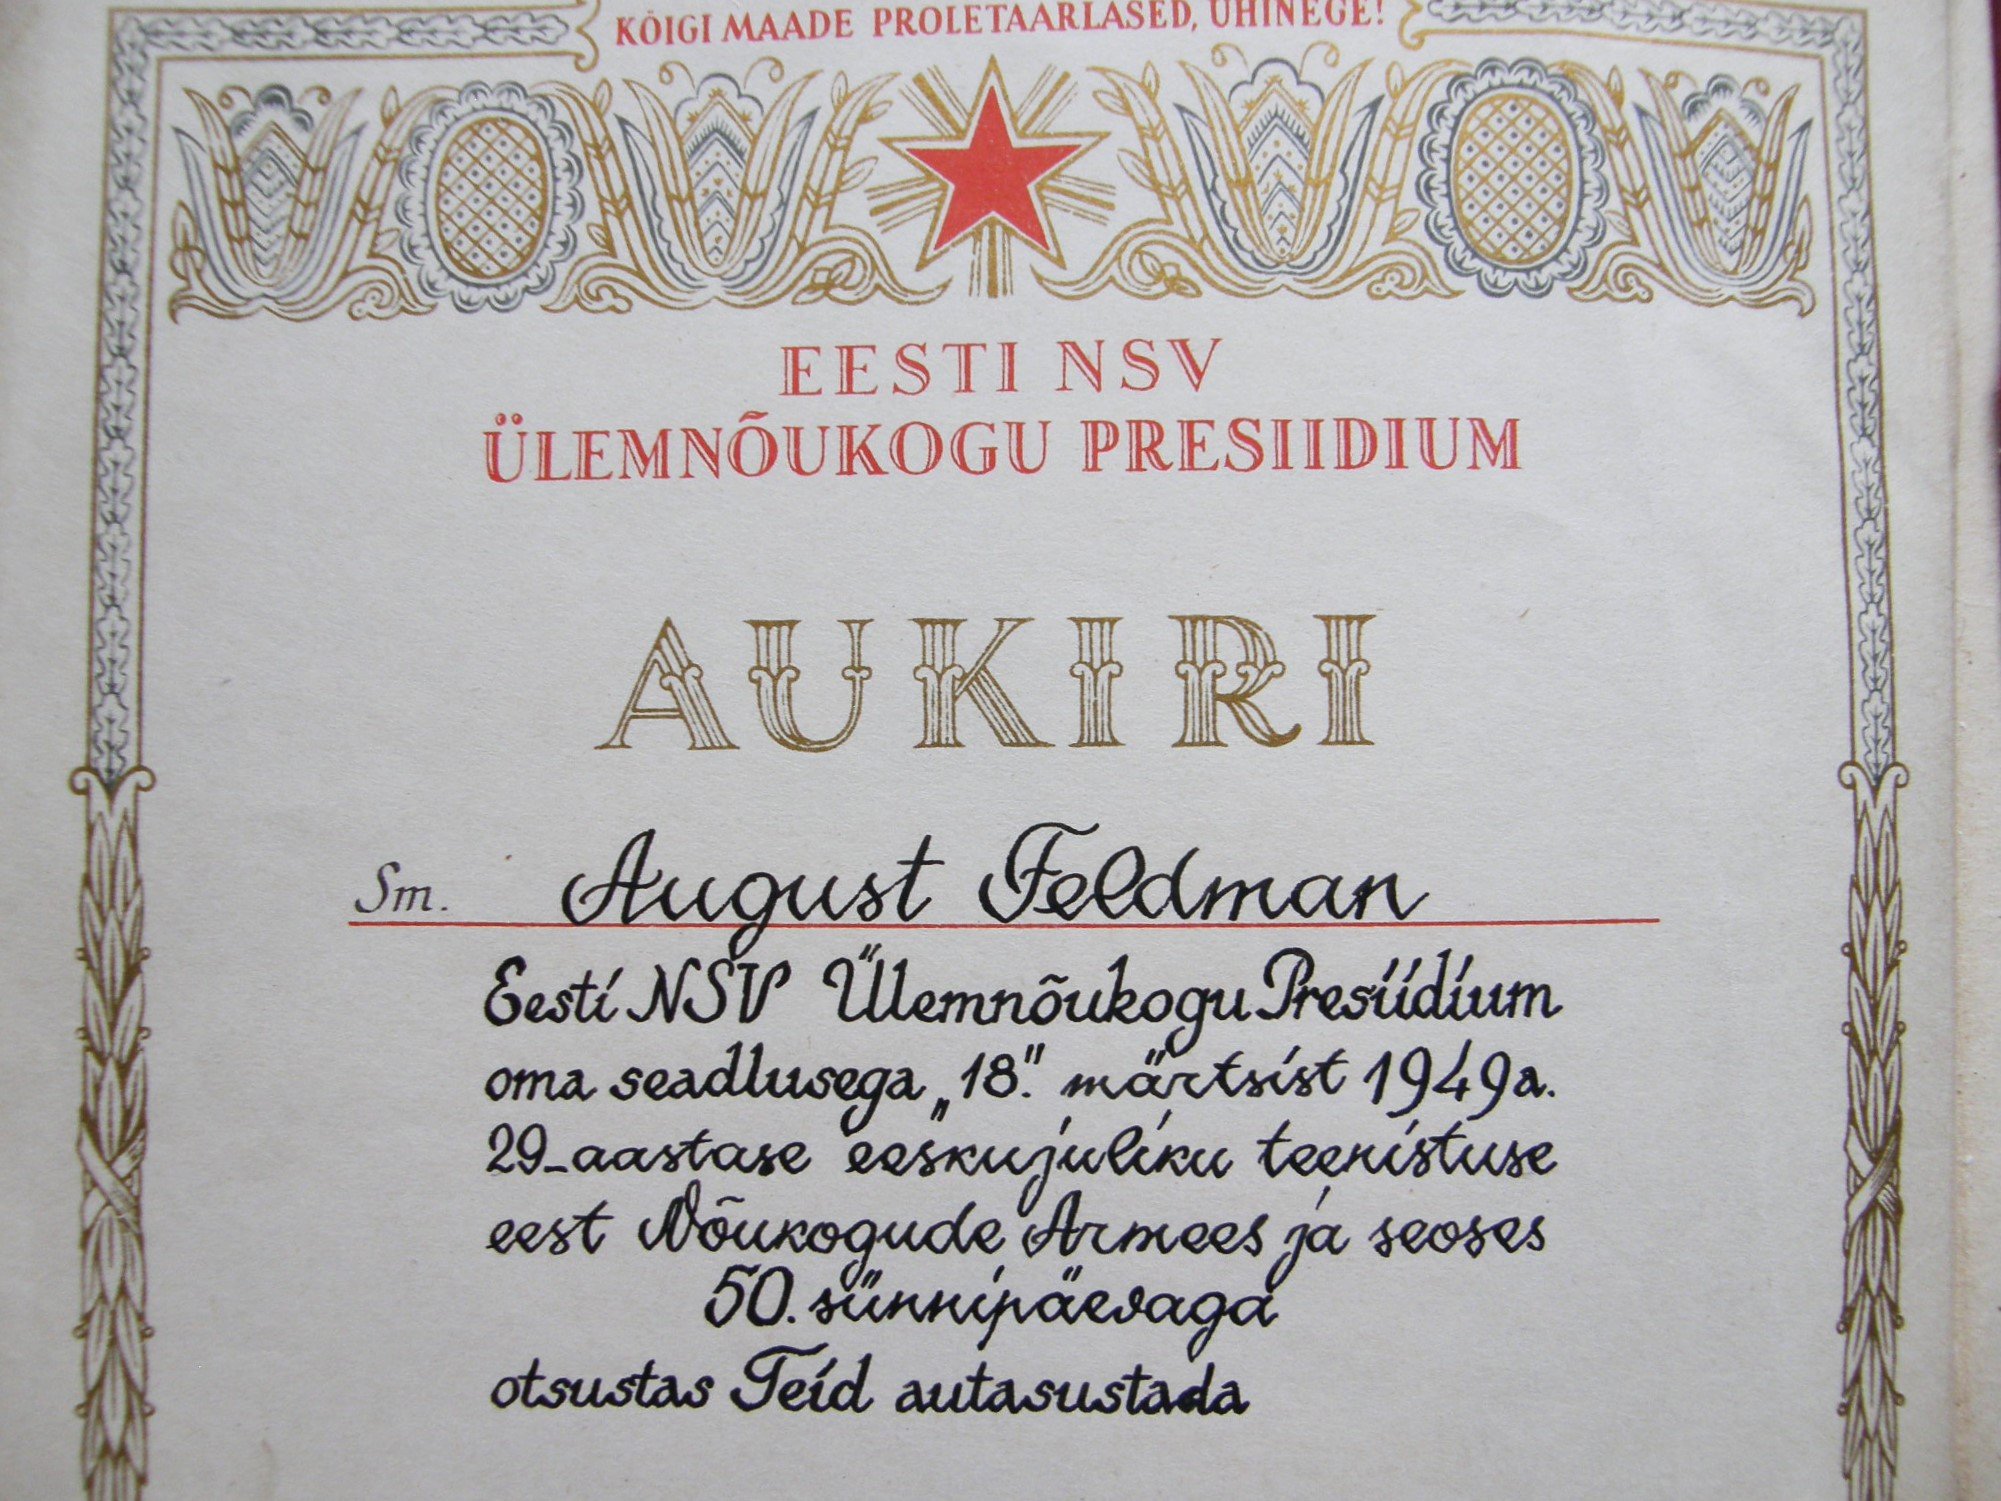 KÕIGI MAADE PROLETAARLASED, ÜHINEGE!
EESTI NSV
ÜLEMNÕUKOGU PRESIIDIUM
AUKIRI
Sm. August Feldman
Eesti NSV Ülemnõukogu Presiidium
oma seadlusega „18." märtsist 1949 a.
29-aastase eeskujuliku teenistuse
eest Nõukogude Armees ja seoses
50. sünnipäevaga
otsustas Teid autasustada